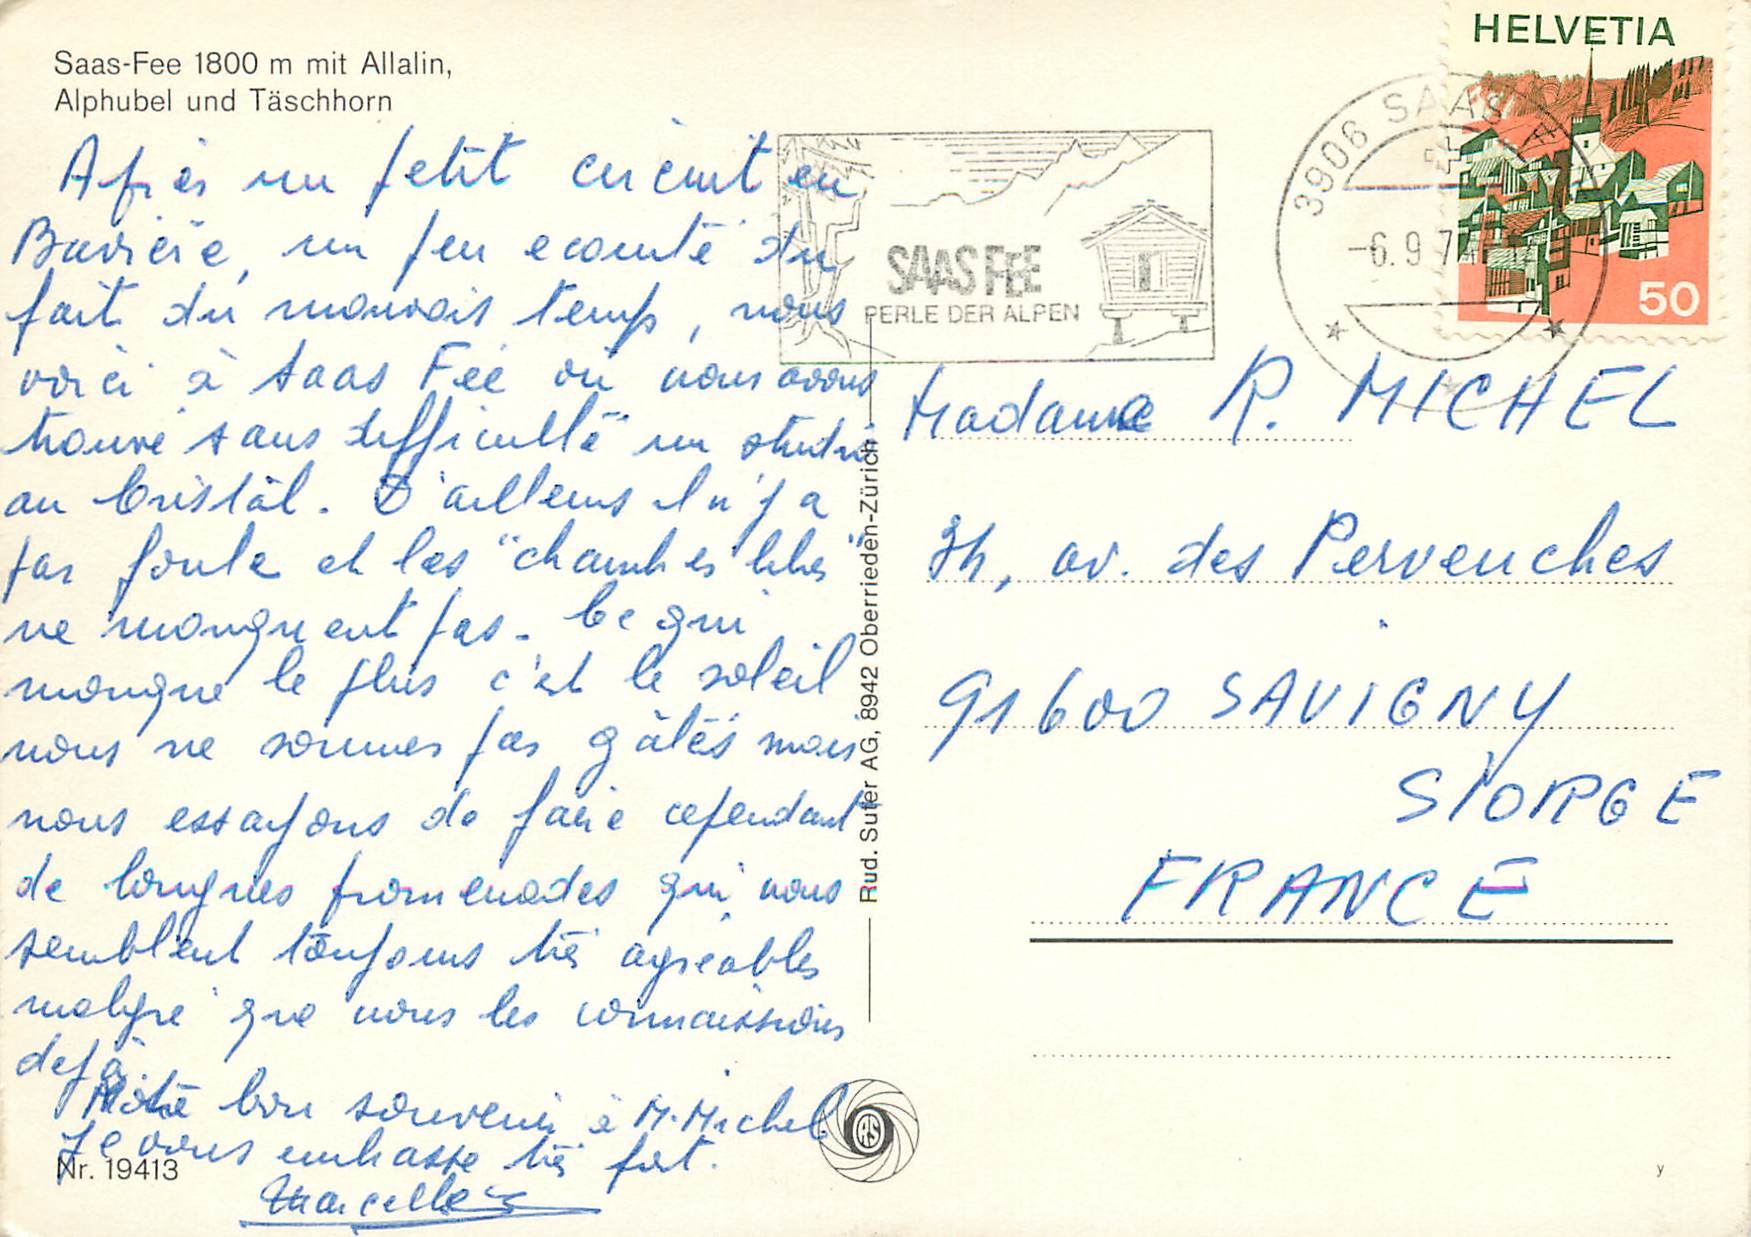 Saas-Fee 1800 m mit Allalin,
Alphubel und Täschhorn
Après un petit circuit en
Bavière, un peu ecourté du
fait du mauvais temps, nous
voici à Saas Fée où nous avons
trouvé sans difficulté un studio
au Cristal. D'ailleurs il n'y a
pas foule et les "chambres libres"
ne manquent pas. Ce qui
manque le plus c'est le soleil
nous ne sommes pas gâtés mais
nous essayons de faire cependant
de longues promenades qui nous
semblent toujours très agréables
malgré que nous les connaissions
dejà.
Notre bon souvenir à M. Michel
Je vous embrasse très fort.
Marcelle
Nr. 19413
Rud. Suter AG, 8942 Oberrieden-Zürich
SAAS FEE
PERLE DER ALPEN
3906 SAAS-FEE
-6.9.7
HELVETIA
50
Madame R. MICHEL
34, av. des Pervenches
91600 SAVIGNY
S/ORGE
FRANCE
RS
y